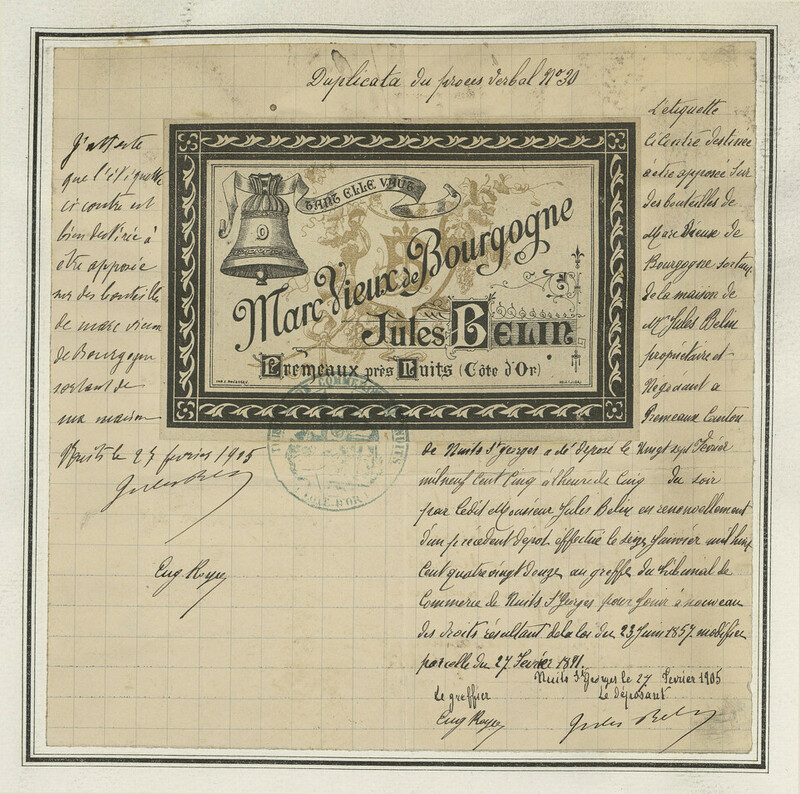 Duplicata du procès verbal No 30
J'atteste
que l'étiquette
ci contre est
bien destinée à
être apposée
sur des bouteilles
de marc vieux
de Bourgogne
sortant de
ma maison
Nuits le 27 février 1905
Jules Belin
Eug Royer
TANT ELLE VAUT
Marc Vieux de Bourgogne
Jules BELIN
Prémeaux près Nuits (Côte d'Or)
L'étiquette
ci contre destinée
à être apposée sur
des bouteilles de
Marc Vieux de
Bourgogne sortant
de la maison de
Mr Jules Belin
propriétaire et
Négociant à
Premeaux Canton
de Nuits St Georges a été déposé le Vingt sept Février
mil neuf cent cinq à l'heure de cinq du soir
par ledit Monsieur Jules Belin en renouvellement
d'un précédent dépot effectué le seize Janvier mil huit
cent quatre vingt douze au greffe du tribunal de
Commerce de Nuits St Georges pour jouir à nouveau
des droits résultant de la loi du 23 Juin 1857 modifiée
par celle du 27 Février 1891.
Nuits St Georges le 27 Février 1905
Le greffier
Le déposant
Eug Royer
Jules Belin
COMMERCE
NUITS
CÔTE D'OR